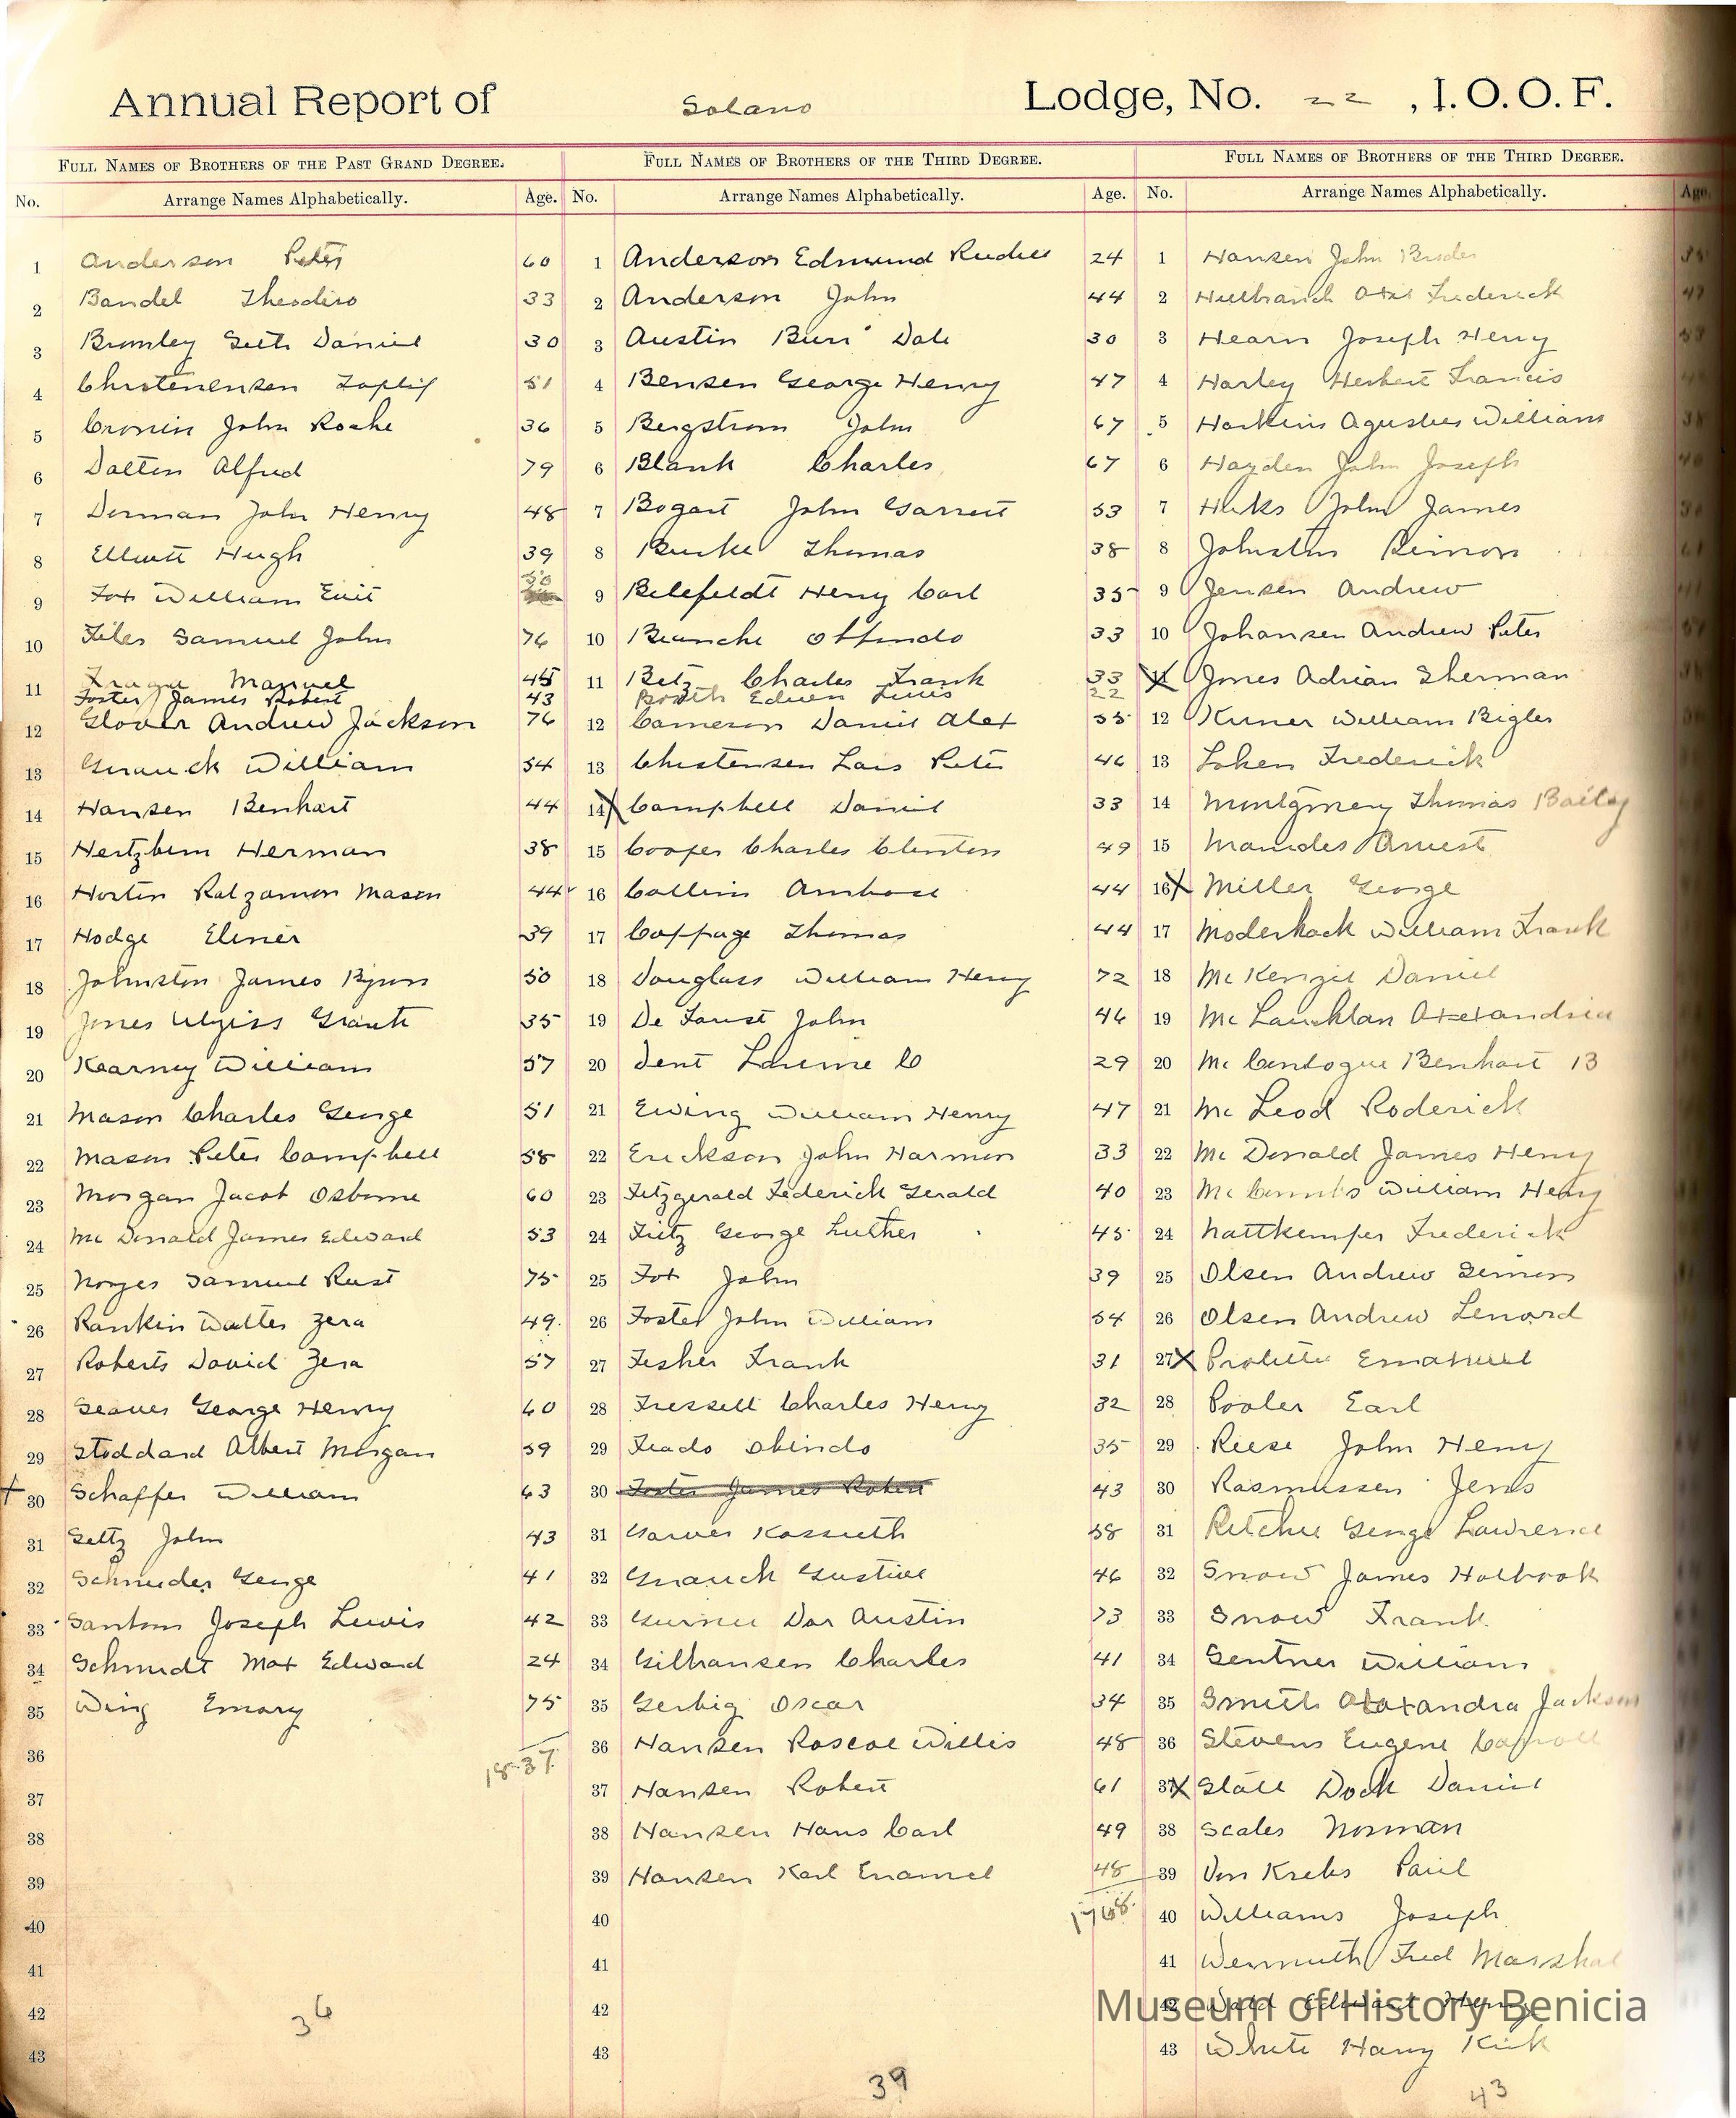 Annual Report of Solano Lodge, No. 22, I.O.O.F.
FULL NAMES OF BROTHERS OF THE PAST GRAND DEGREE.
No. Arrange Names Alphabetically. Age.
1 Anderson Peter 60
2 Bandel Theodiro 33
3 Brumley Seth Daniel 30
4 Christenensen 51
5 Cronin John Roche 36
6 Dalton Alfred 79
7 Dorman John Henry 48
8 Elliott Hugh 39
9 Fox William Emit 50
10 Files Samuel John 76
11 Manuel 45
Foster James Robert 43
12 Glover Andrew Jackson 76
13 Gnauck William 54
14 Hansen Benhart 44
15 Hertzbem Herman 38
16 Horton Ratzamon Mason 44
17 Hodge Elmer 39
18 Johnston James Byron 50
19 Jones Ulyiss Grant 35
20 Kearney William 57
21 Mason Charles George 51
22 Mason Peter Campbell 58
23 Morgan Jacob Osborne 60
24 Mc Donald James Edward 53
25 Noyes Samuel Rust 75
26 Rankin Walter Zera 49
27 Roberts David Zera 57
28 Seaver George Henry 60
29 Stoddard Albert Morgan 59
30 Schaffer William 63
31 Seltz John 43
32 Schnieder George 41
33 Santom Joseph Lewis 42
34 Schmidt Max Edward 24
35 Wing Emory 75
36
1837
37
38
39
40
41
42
43
36
FULL NAMES OF BROTHERS OF THE THIRD DEGREE.
No. Arrange Names Alphabetically. Age.
1 Anderson Edmund 24
2 Anderson John 44
3 Austin Burr Dale 30
4 Bensen George Henry 47
5 Bergstrom John 67
6 Blank Charles 67
7 Bogart John Garrett 53
8 Burke Thomas 38
9 Belefeldt Henry Carl 35
10 Bianchi 33
11 Betz Charles Frank 33
Booth Edwen Luis 22
12 Cameron Daniel Alex 55
13 Christensen Lars Peter 46
14 X Campbell Daniel 33
15 Cooper Charles Clinton 49
16 Collins Ambrose 44
17 Coppage Thomas 44
18 Douglass William Henry 72
19 De Foust John 46
20 Dent C 29
21 Ewing William Henry 47
22 Erickson John Harmon 33
23 Fitzgerald Federick Gerald 40
24 Fritz George Luther 45
25 Fox John 39
26 Foster John William 54
27 Fesher Frank 31
28 Fressell Charles Henry 32
29 35
30 Foster James Robert 43
31 Garver Kossuth 58
32 Gnauck Gustive 46
33 Dar Austin 73
34 Gilhausen Charles 41
35 Gerbig Oscar 34
36 Hansen Roscoe Willis 48
37 Hansen Robert 61
38 Hansen Hans Carl 49
39 Hansen Karl Enamel 48
40
1768
41
42
43
39
FULL NAMES OF BROTHERS OF THE THIRD DEGREE.
No. Arrange Names Alphabetically. Age.
1 Hansen John
2 Hillbranch Axel Frederick
3 Hearn Joseph Henry
4 Harley Herbert Francis
5 Harkins Agustus William
6 Hayden John Joseph
7 Hicks John James
8 Johnston
9 Jensen Andrew
10 Johansen Andrew Peter
11 X Jones Adrian Sherman
12 Kuner William Bigler
13 Loken Frederick
14 Montgmery Thomas Bailey
15
16 X Miller George
17 Moderhack William Frank
18 Mc Kenzie Daniel
19 Mc Lauchlan Alexandria
20 Mc Benhart B
21 Mc Leod Roderick
22 Mc Donald James Henry
23 Mc William Henry
24 Nattkemper Frederick
25 Olsen Andrew
26 Olsen Andrew Lenord
27 X Emanuel
28 Pooler Earl
29 Reese John Henry
30 Rasmussen Jens
31 Ritchie George Lawrence
32 Snow James Holbrook
33 Snow Frank
34 Gentner William
35 Smith Jackson
36 Stevens Eugene Carroll
37 X Dock Daniel
38 Scales Norman
39 Von Krebs Paul
40 Williams Joseph
41 Wermuth Fred Marshal
42 Edward Henry
43 White Harry Kirk
43
Museum of History Benicia